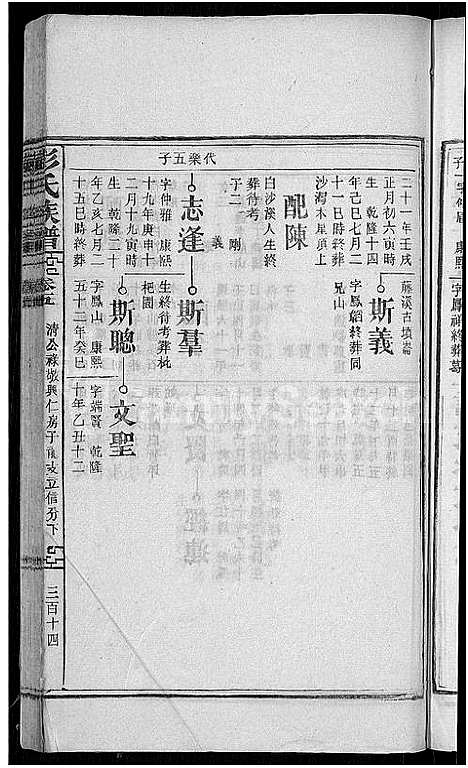 二十一年壬戌
正月初六寅時
生 乾隆十四
年己巳七月二
十一日時終葬
沙灣木星頂上
配陳
白沙溪人生終
葬待考
子二 剛
義
代樂五子
志逢
字仲雅 康熙
十九年庚申十
二月十九寅時
生 乾隆二十
年乙亥七月二
十五日時終葬
藤溪古墳崙
斯義
字鳳韜終葬同
兄山
斯羣
生終待考葬枇
杷園
斯聰
字鳳山 康熙
五十二年癸巳
文聖
字端賢 乾隆
十年乙丑十二
彭氏族譜
清公祿敬興仁房子龍支立信分下
三百十四